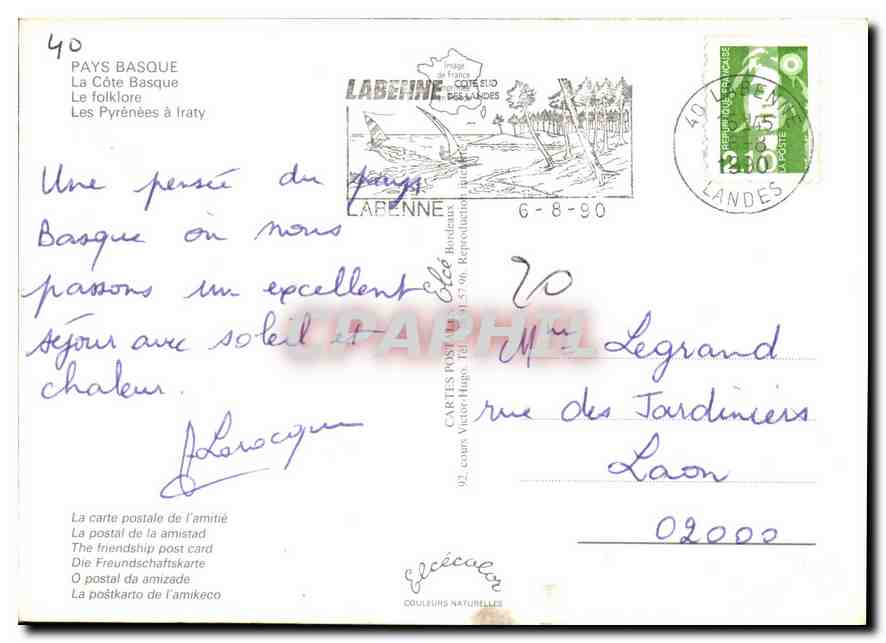 40
PAYS BASQUE
La Côte Basque
Le folklore
Les Pyrénées à Iraty
Image
de France
LABENNE CÔTE SUD
DES LANDES
LABENNE 6-8-90
40 LABENNE
1990
LANDES
RÉPUBLIQUE FRANÇAISE
2,10
LA POSTE
Une pensée du pays
Basque où nous
passons un excellent
séjour avec soleil et
chaleur.
20
Mme Legrand
rue des Jardiniers
Laon
02000
CARTES POST Elcé Bordeaux
92, cours Victor-Hugo. Tél. 91.57.96. Reproduction
CPAPHIL
La carte postale de l'amitié
La postal de la amistad
The friendship post card
Die Freundschaftskarte
O postal da amizade
La poŝtkarto de l'amikeco
Elcécolor
COULEURS NATURELLES